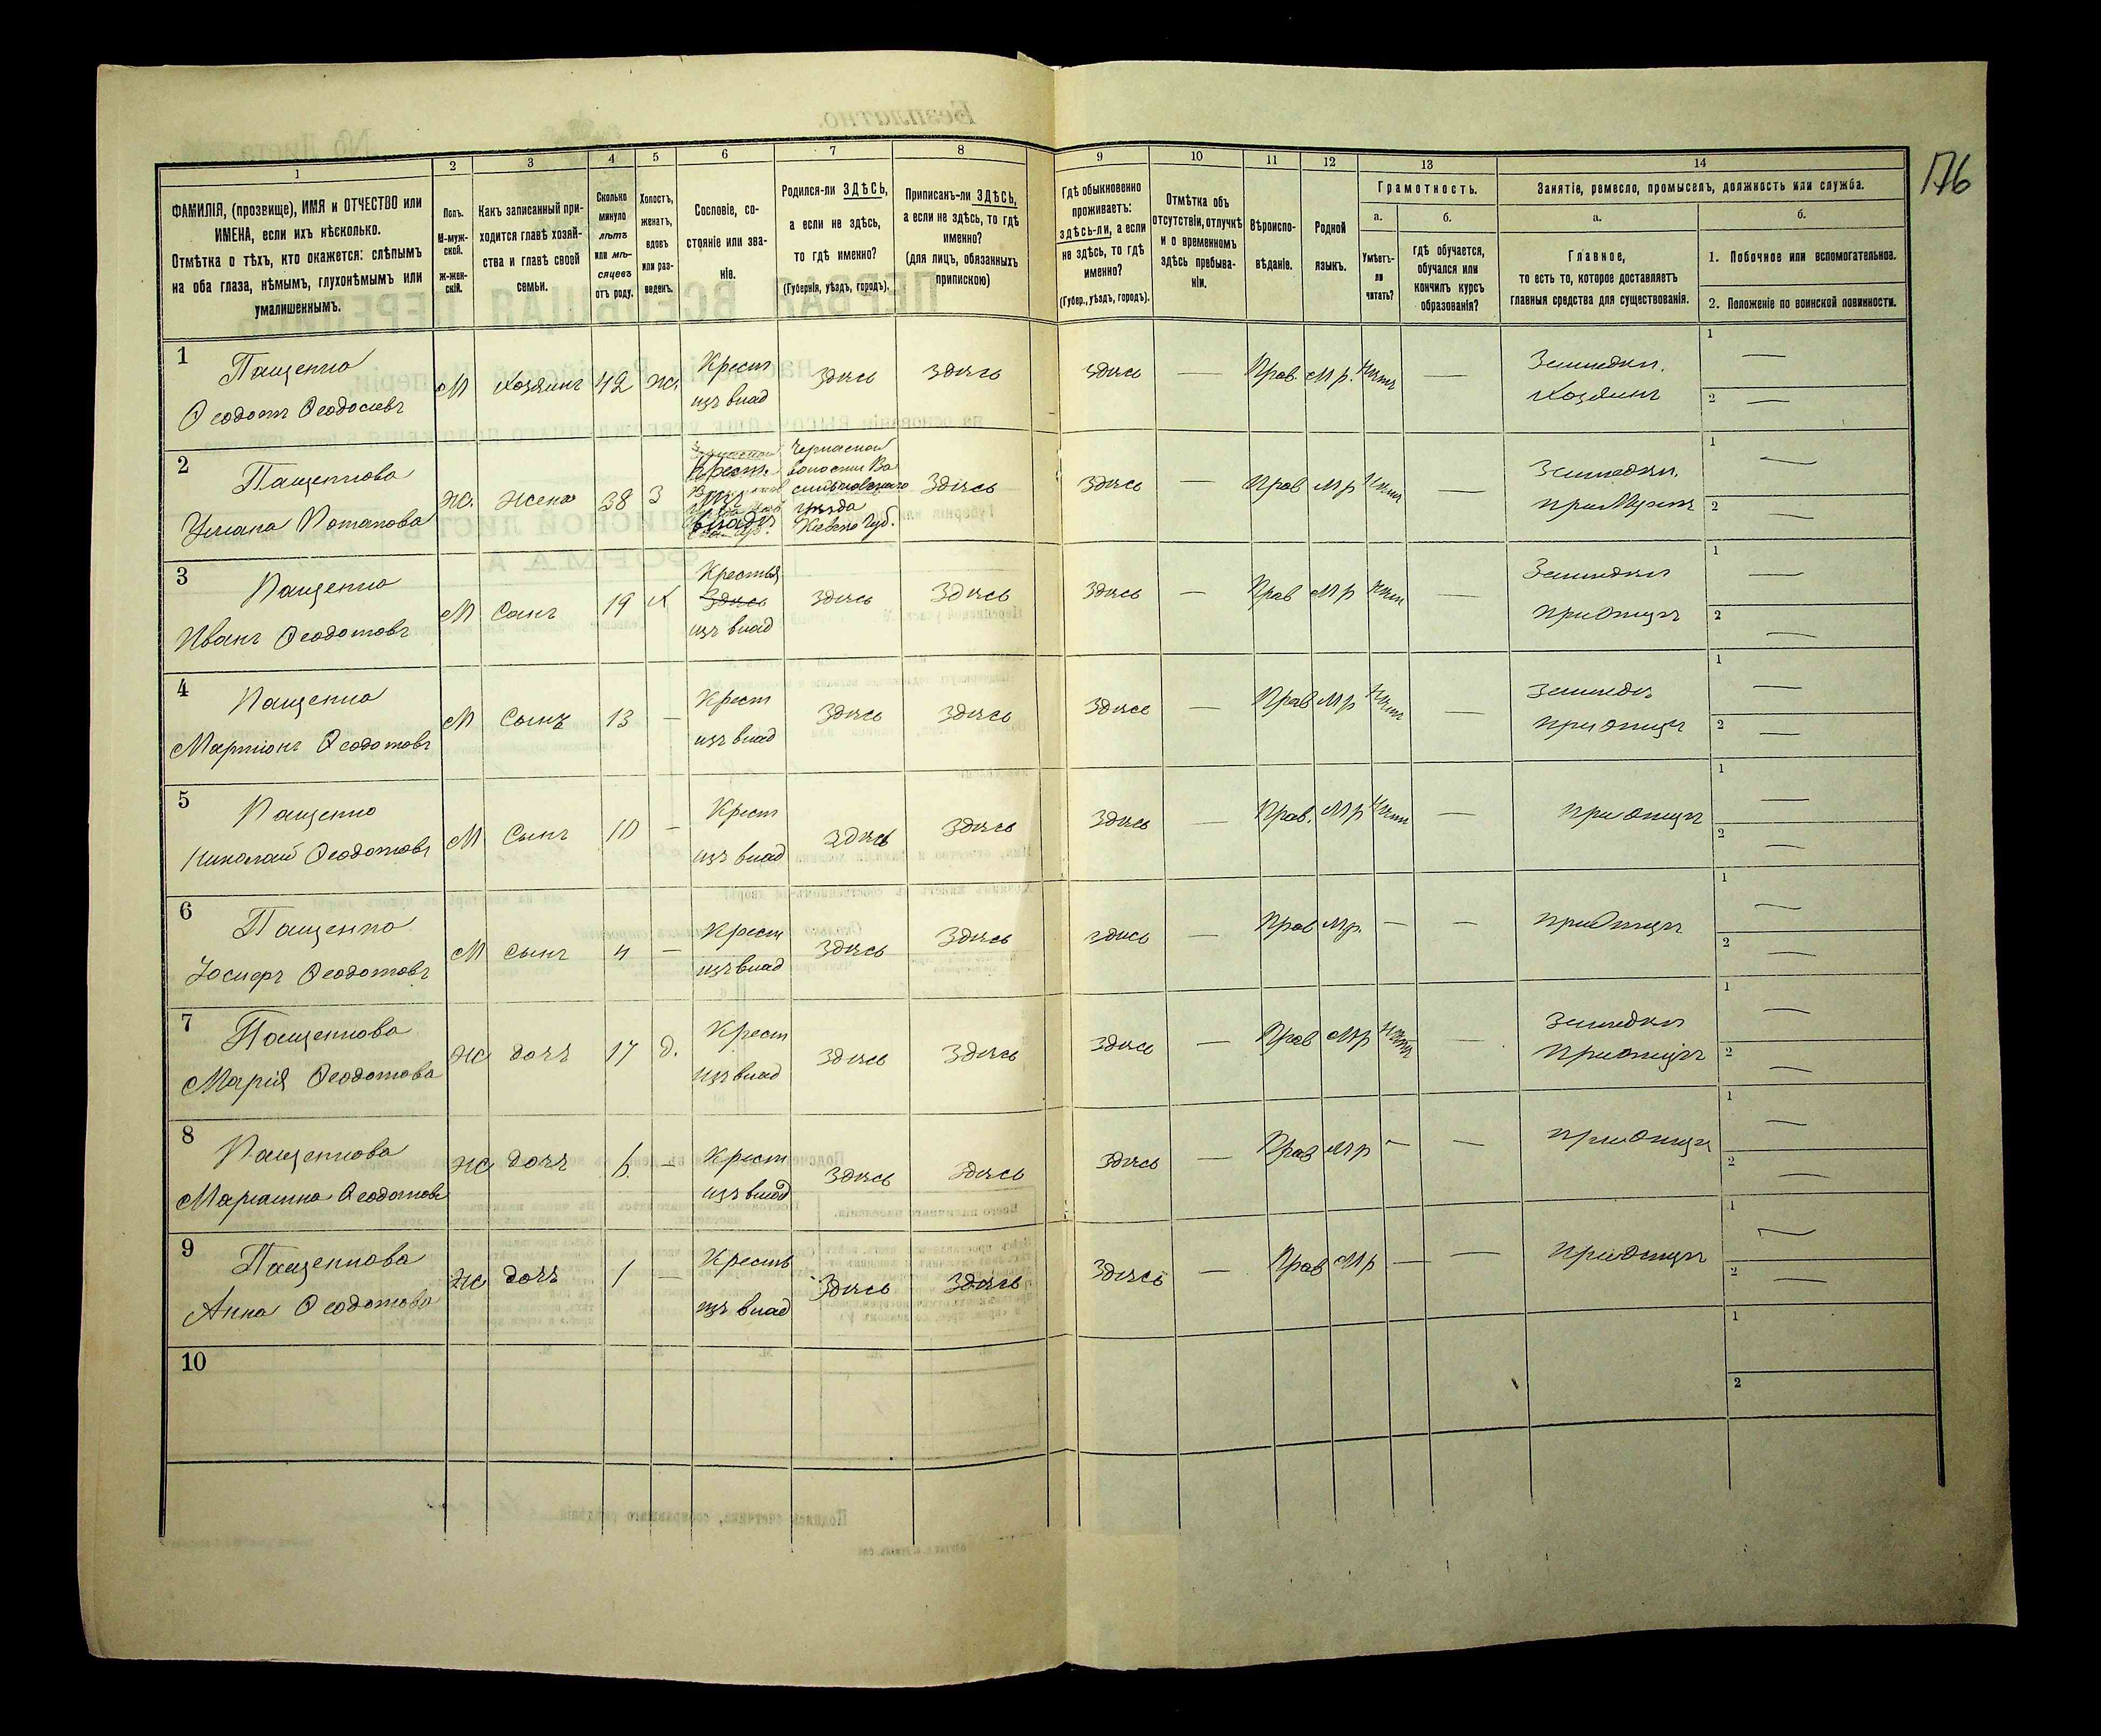 176
1 2 3 4 5 6 7 8 9 10 11 12 13 14
ФАМИЛІЯ, (прозвище), ИМЯ и ОТЧЕСТВО или
ИМЕНА, если ихъ нѣсколько.
Отмѣтка о тѣхъ, кто окажется: слѣпымъ
на оба глаза, нѣмымъ, глухонѣмымъ или
умалишеннымъ.
Полъ.
М-муж-
ской.
Ж-жен-
скій.
Какъ записанный при-
ходится главѣ хозяй-
ства и главѣ своей
семьи.
Сколько
минуло
лѣтъ
или мѣ-
сяцевъ
отъ роду.
Холостъ,
женатъ,
вдовъ
или раз-
веденъ.
Сословіе, со-
стояніе или зва-
ніе.
Родился-ли ЗДѢСЬ,
а если не здѣсь,
то гдѣ именно?
(Губернія, уѣздъ, городъ).
Приписанъ-ли ЗДѢСЬ,
а если не здѣсь, то гдѣ
именно?
(для лицъ, обязанныхъ
припискою)
Гдѣ обыкновенно
проживаетъ:
здѣсь-ли, а если
не здѣсь, то гдѣ
именно?
(Губер., уѣздъ, городъ).
Отмѣтка объ
отсутствіи, отлучкѣ
и о временномъ
здѣсь пребыва-
ніи.
Вѣроиспо-
вѣданіе.
Родной
языкъ.
Грамотность.
а.
Умѣетъ-
ли
читать?
б.
гдѣ обучается,
обучался или
кончилъ курсъ
образованія?
Занятіе, ремесло, промыселъ, должность или служба.
а.
Главное,
то есть то, которое доставляетъ
главныя средства для существованія.
б.
1. Побочное или вспомогательное.
2. Положеніе по воинской повинности.
1 Пащенко
Ѳеодотъ Ѳеодосіевъ
М Хозяинъ 42 Ж. Крест
изъ влад
Здѣсь Здѣсь Здѣсь — Прав. М р. Нѣтъ —
Земледѣл.
Хозяинъ
1 —
2 —
2 Пащенкова
Потапова
Ж. Жена 38 З
Крест.
изъ
влад
Черкасской
волости Ва
сильковскаго
уѣзда
Кіевск Губ.
Здѣсь Здѣсь Прав М р Нѣтъ —
Земледѣл.
при Мужѣ
1 —
2 —
3 Пащенко
Иванъ Ѳеодотовъ
М Сынъ 19 Х Крестья
Здѣсь
изъ влад
Здѣсь Здѣсь Здѣсь — Прав М р Нѣтъ —
Земледѣл
при отцѣ
1 —
2 —
4 Пащенко
Ѳеодотовъ
М Сынъ 13 — Крест
изъ влад
Здѣсь Здѣсь Здѣсь — Прав М р Нѣтъ —
Земледѣл
при отцѣ
1 —
2 —
5 Пащенко
Николай Ѳеодотовъ
М Сынъ 10 — Крест
изъ влад
Здѣсь Здѣсь Здѣсь — Прав. М р Нѣтъ —
при отцѣ
1 —
2 —
6 Пащенко
Іосифъ Ѳеодотовъ
М Сынъ 4 — Крест
изъ влад
Здѣсь Здѣсь здѣсь — Прав М р. — —
при отцѣ
1 —
2 —
7 Пащенкова
Марія Ѳеодотова
Ж дочь 17 д. Крест
изъ влад
Здѣсь Здѣсь Здѣсь — Прав М р Нѣтъ —
Земледѣл
при отцѣ
1 —
2 —
8 Пащенкова
Ѳеодотова
Ж дочь 6 — Крест
изъ влад
Здѣсь Здѣсь Здѣсь — Прав М р — —
при отцѣ
1 —
2 —
9 Пащенкова
Анна Ѳеодотова
Ж дочь 1 — Кресть
изъ влад
Здѣсь Здѣсь Здѣсь — Прав М р — —
при отцѣ
1 —
2 —
10
1
2